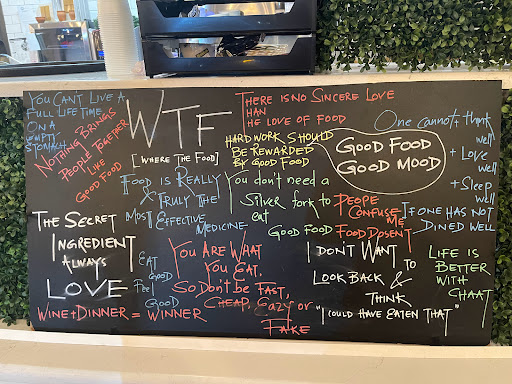 YOU CAN'T LIVE A
FULL LIFE TIME
ON A
EMPTY
STOMACH
NOTHING BRINGS
PEOPLE TOGETHER
LIKE
GOOD FOOD
WTF
[WHERE THE FOOD]
THERE IS NO SINCERE LOVE
HAN
HE LOVE OF FOOD
HARD WORK SHOULD
BE REWARDED
BY GOOD FOOD
GOOD FOOD
GOOD MOOD
One cannot + think
well
+ Love
well
+ Sleep
well
IF ONE HAS NOT
DINED WELL
FOOD IS REALLY
& TRULY THE
MOST EFFECTIVE
MEDICINE
You don't need a
Silver fork to
eat
GOOD FOOD
PEOPE
CONFUSE
ME
FOOD DOSENT
THE SECRET
INGREDIENT
ALWAYS
LOVE
EAT
GOOD
FEEL
GOOD
YOU ARE WHAT
YOU EAT,
SO DON'T BE FAST,
CHEAP, EAZY OR
FAKE
I DON'T WANT TO
LOOK BACK &
THINK
"I COULD HAVE EATEN THAT"
LIFE IS
BETTER
WITH
CHAAT
WINE + DINNER = WINNER